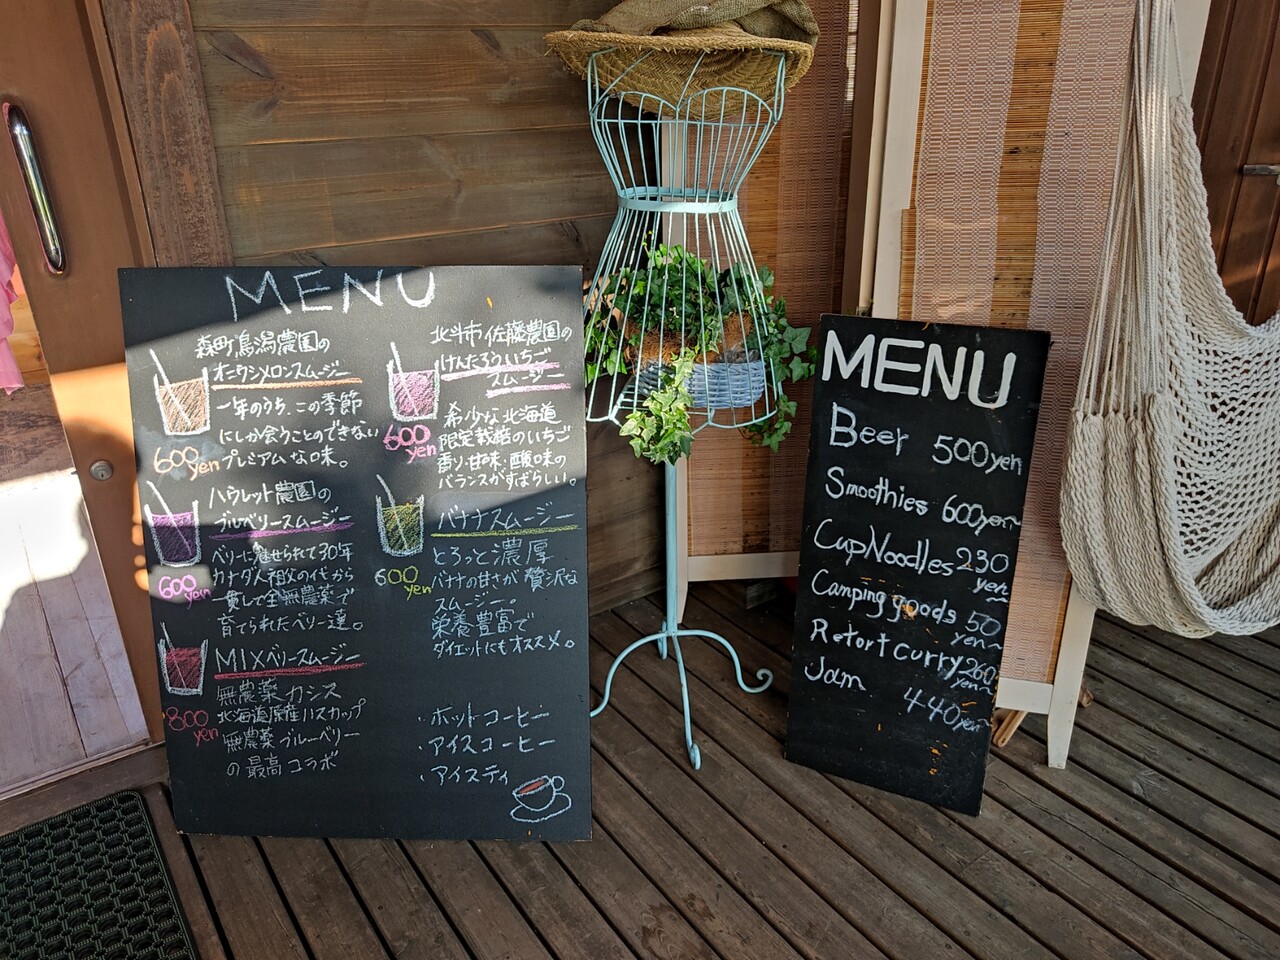 MENU
森町鳥潟農園の
オニウシメロンスムージー
一年のうち、この季節
にしか会うことのできない
プレミアムな味。
600
yen
北斗市佐藤農園の
けんたろういちご
スムージー
希少な北海道
限定栽培のいちご
香り・甘味・酸味の
バランスがすばらしい。
600
yen
ハウレット農園の
ブルーベリースムージー
ベリーに魅せられて30年
カナダ人
の代から
一貫して全無農薬で
育てられたベリー達。
600
yen
バナナスムージー
とろっと濃厚
バナナの甘さが贅沢な
スムージー。
栄養豊富で
ダイエットにもオススメ。
600
yen
MIXベリースムージー
無農薬カシス
北海道原産ハスカップ
無農薬ブルーベリー
の最高コラボ
800
yen
・ホットコーヒー
・アイスコーヒー
・アイスティ
MENU
Beer 500yen
Smoothies 600yen~
CupNoodles 230
yen~
Camping goods 50
yen~
Retort curry 260
yen~
Jam 440yen~